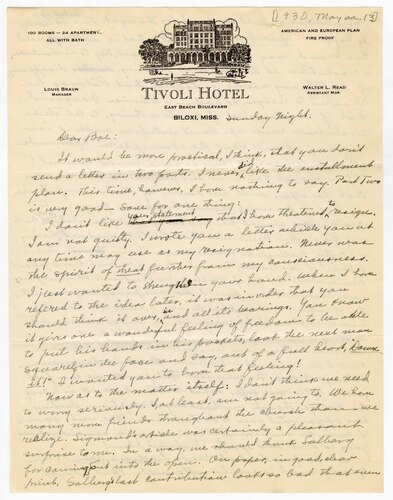 [1930, May ca. 13]
100 ROOMS — 24 APARTMENTS
ALL WITH BATH
AMERICAN AND EUROPEAN PLAN
FIRE PROOF
LOUIS BRAUN
MANAGER
TIVOLI HOTEL
WALTER L. READ
ASSISTANT MGR.
EAST BEACH BOULEVARD
BILOXI, MISS. Sunday Night.
Dear Boe:
It would be more practical, I think, that you don't
send a letter in two parts. I never did like the installment
plan. This time, however, I have nothing to say. Part Two
is very good — save for one thing:
I don't like your statement that I have threatened to resign.
I am not guilty. I wrote you a letter which you at
any time may use as my resignation. Never was
the spirit of threat further from my consciousness.
I just wanted to strengthen your hand. When I have
refered to the idea later, it was in order that you
should think it over, in all its bearings. You know
it gives one a wonderful feeling of freedom to be able
to put his hands in his pockets, look the next man
squarely in the face and say, out of a full heart,
I wanted you to have that feeling!
Now as to the matter itself: I don't think we need
to worry seriously. I, at least, am not going to. We have
many more friends throughout the church than we
realize. Sigmond's article was certainly a pleasant
surprise to me. In a way, we should thank Solberg
for coming out into the open. On paper, in good, clear
print, Solberg's last contribution looks so bad that even